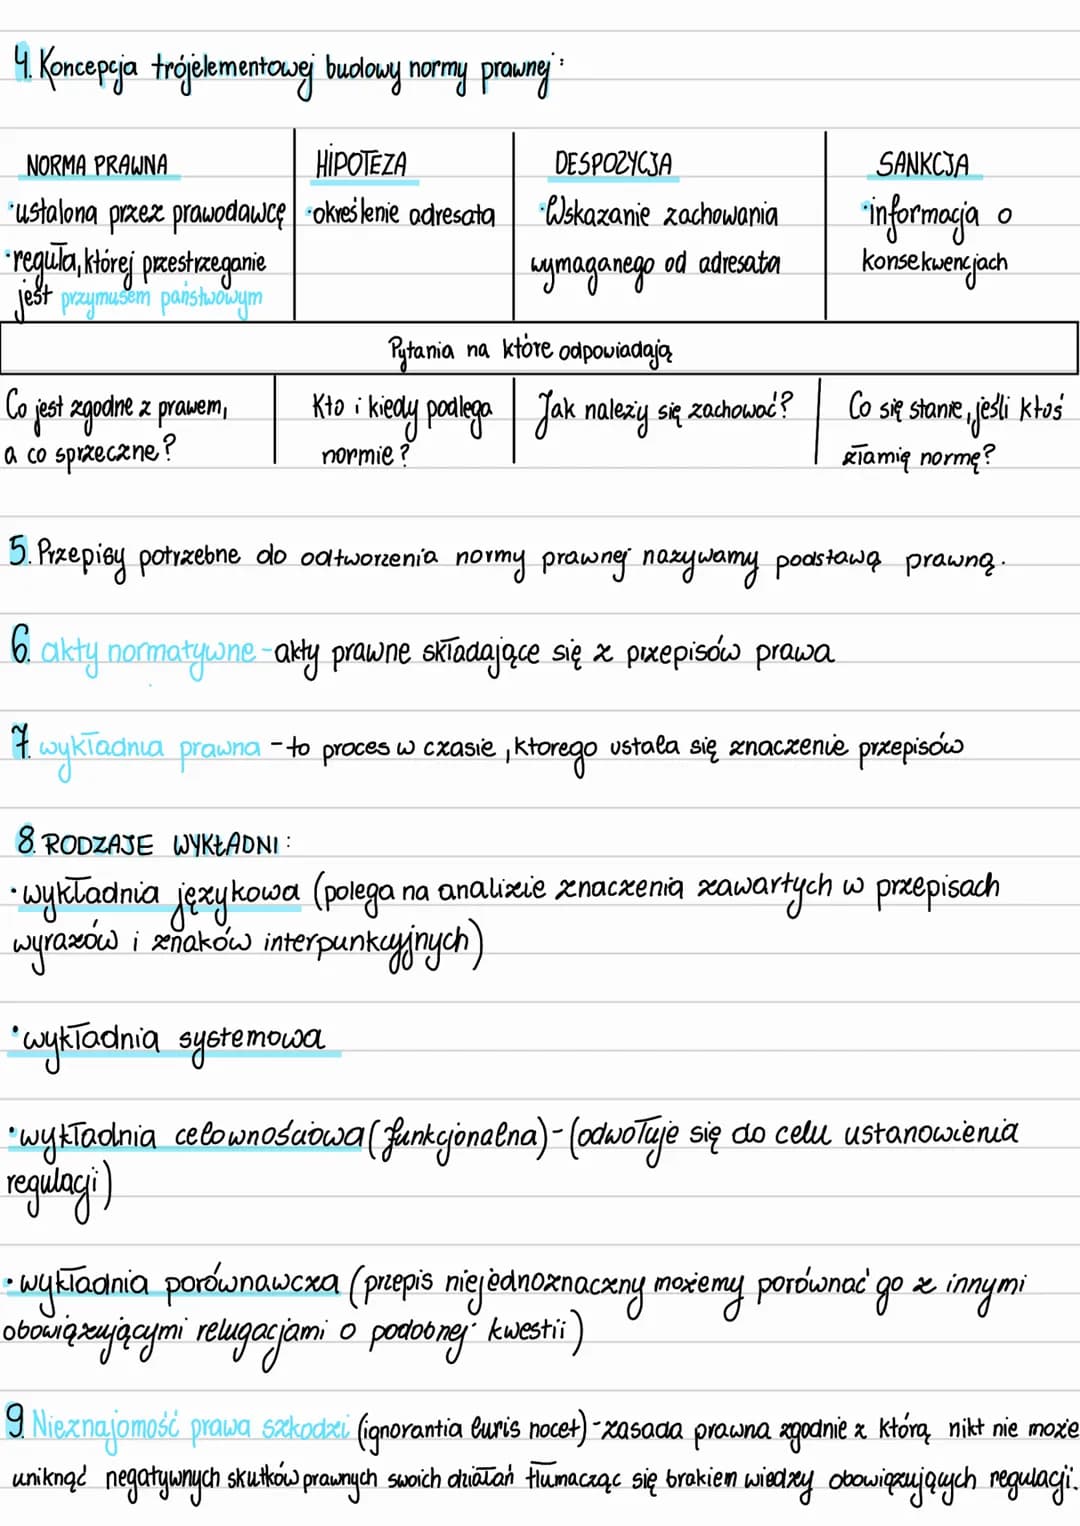 4. Koncepcja trójelementowej budowy normy prawnej:
NORMA PRAWNA HIPOTEZA DESPOZYCJA SANKCJA
•ustalona przez prawodawcę •określenie adresata •Wskazanie zachowania •informacja o
•reguła, której przestrzeganie wymaganego od adresata konsekwencjach
jest przymusem państwowym
Pytania na które odpowiadają
Co jest zgodne z prawem, Kto i kiedy podlega Jak należy się zachować? Co się stanie, jeśli ktoś
a co sprzeczne? normie? złamię normę?
5. Przepisy potrzebne do odtworzenia normy prawnej nazywamy podstawą prawną.
6. akty normatywne - akty prawne składające się z przepisów prawa
7. wykładnia prawna - to proces w czasie, ktorego ustala się znaczenie przepisów
8. RODZAJE WYKŁADNI:
•wykładnia językowa (polega na analizie znaczenia zawartych w przepisach
wyrazów i znaków interpunkcyjnych)
•wykładnia systemowa
•wykładnia celownościowa (funkcjonalna) - (odwołuje się do celu ustanowienia
regulacji)
•wykładnia porównawcza (przepis niejednoznaczny możemy porównać go z innymi
obowiązującymi relugacjami o podobnej kwestii)
9. Nieznajomość prawa szkodzi (ignorantia euris nocet) - zasada prawna zgodnie z którą nikt nie może
uniknąć negatywnych skutków prawnych swoich działań tłumacząc się brakiem wiedzy obowiązujących regulacji.